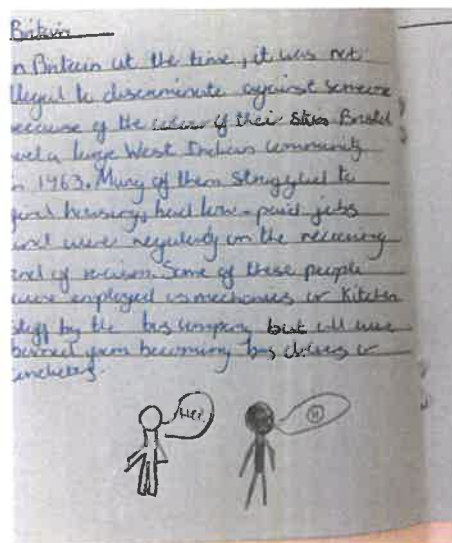 Britain
n Britain at the time, it was not
llegal to discriminate against someone
ecause of the colour of their skin Bristol
had a large West Indian community
n 1963. Many of them struggled to
find housing, had low-paid jobs
and were regularly on the receiving
end of racism. Some of these people
were employed as mechanics or kitchen
staff by the bus company but all were
barred from becoming bus drivers or
Hi
H